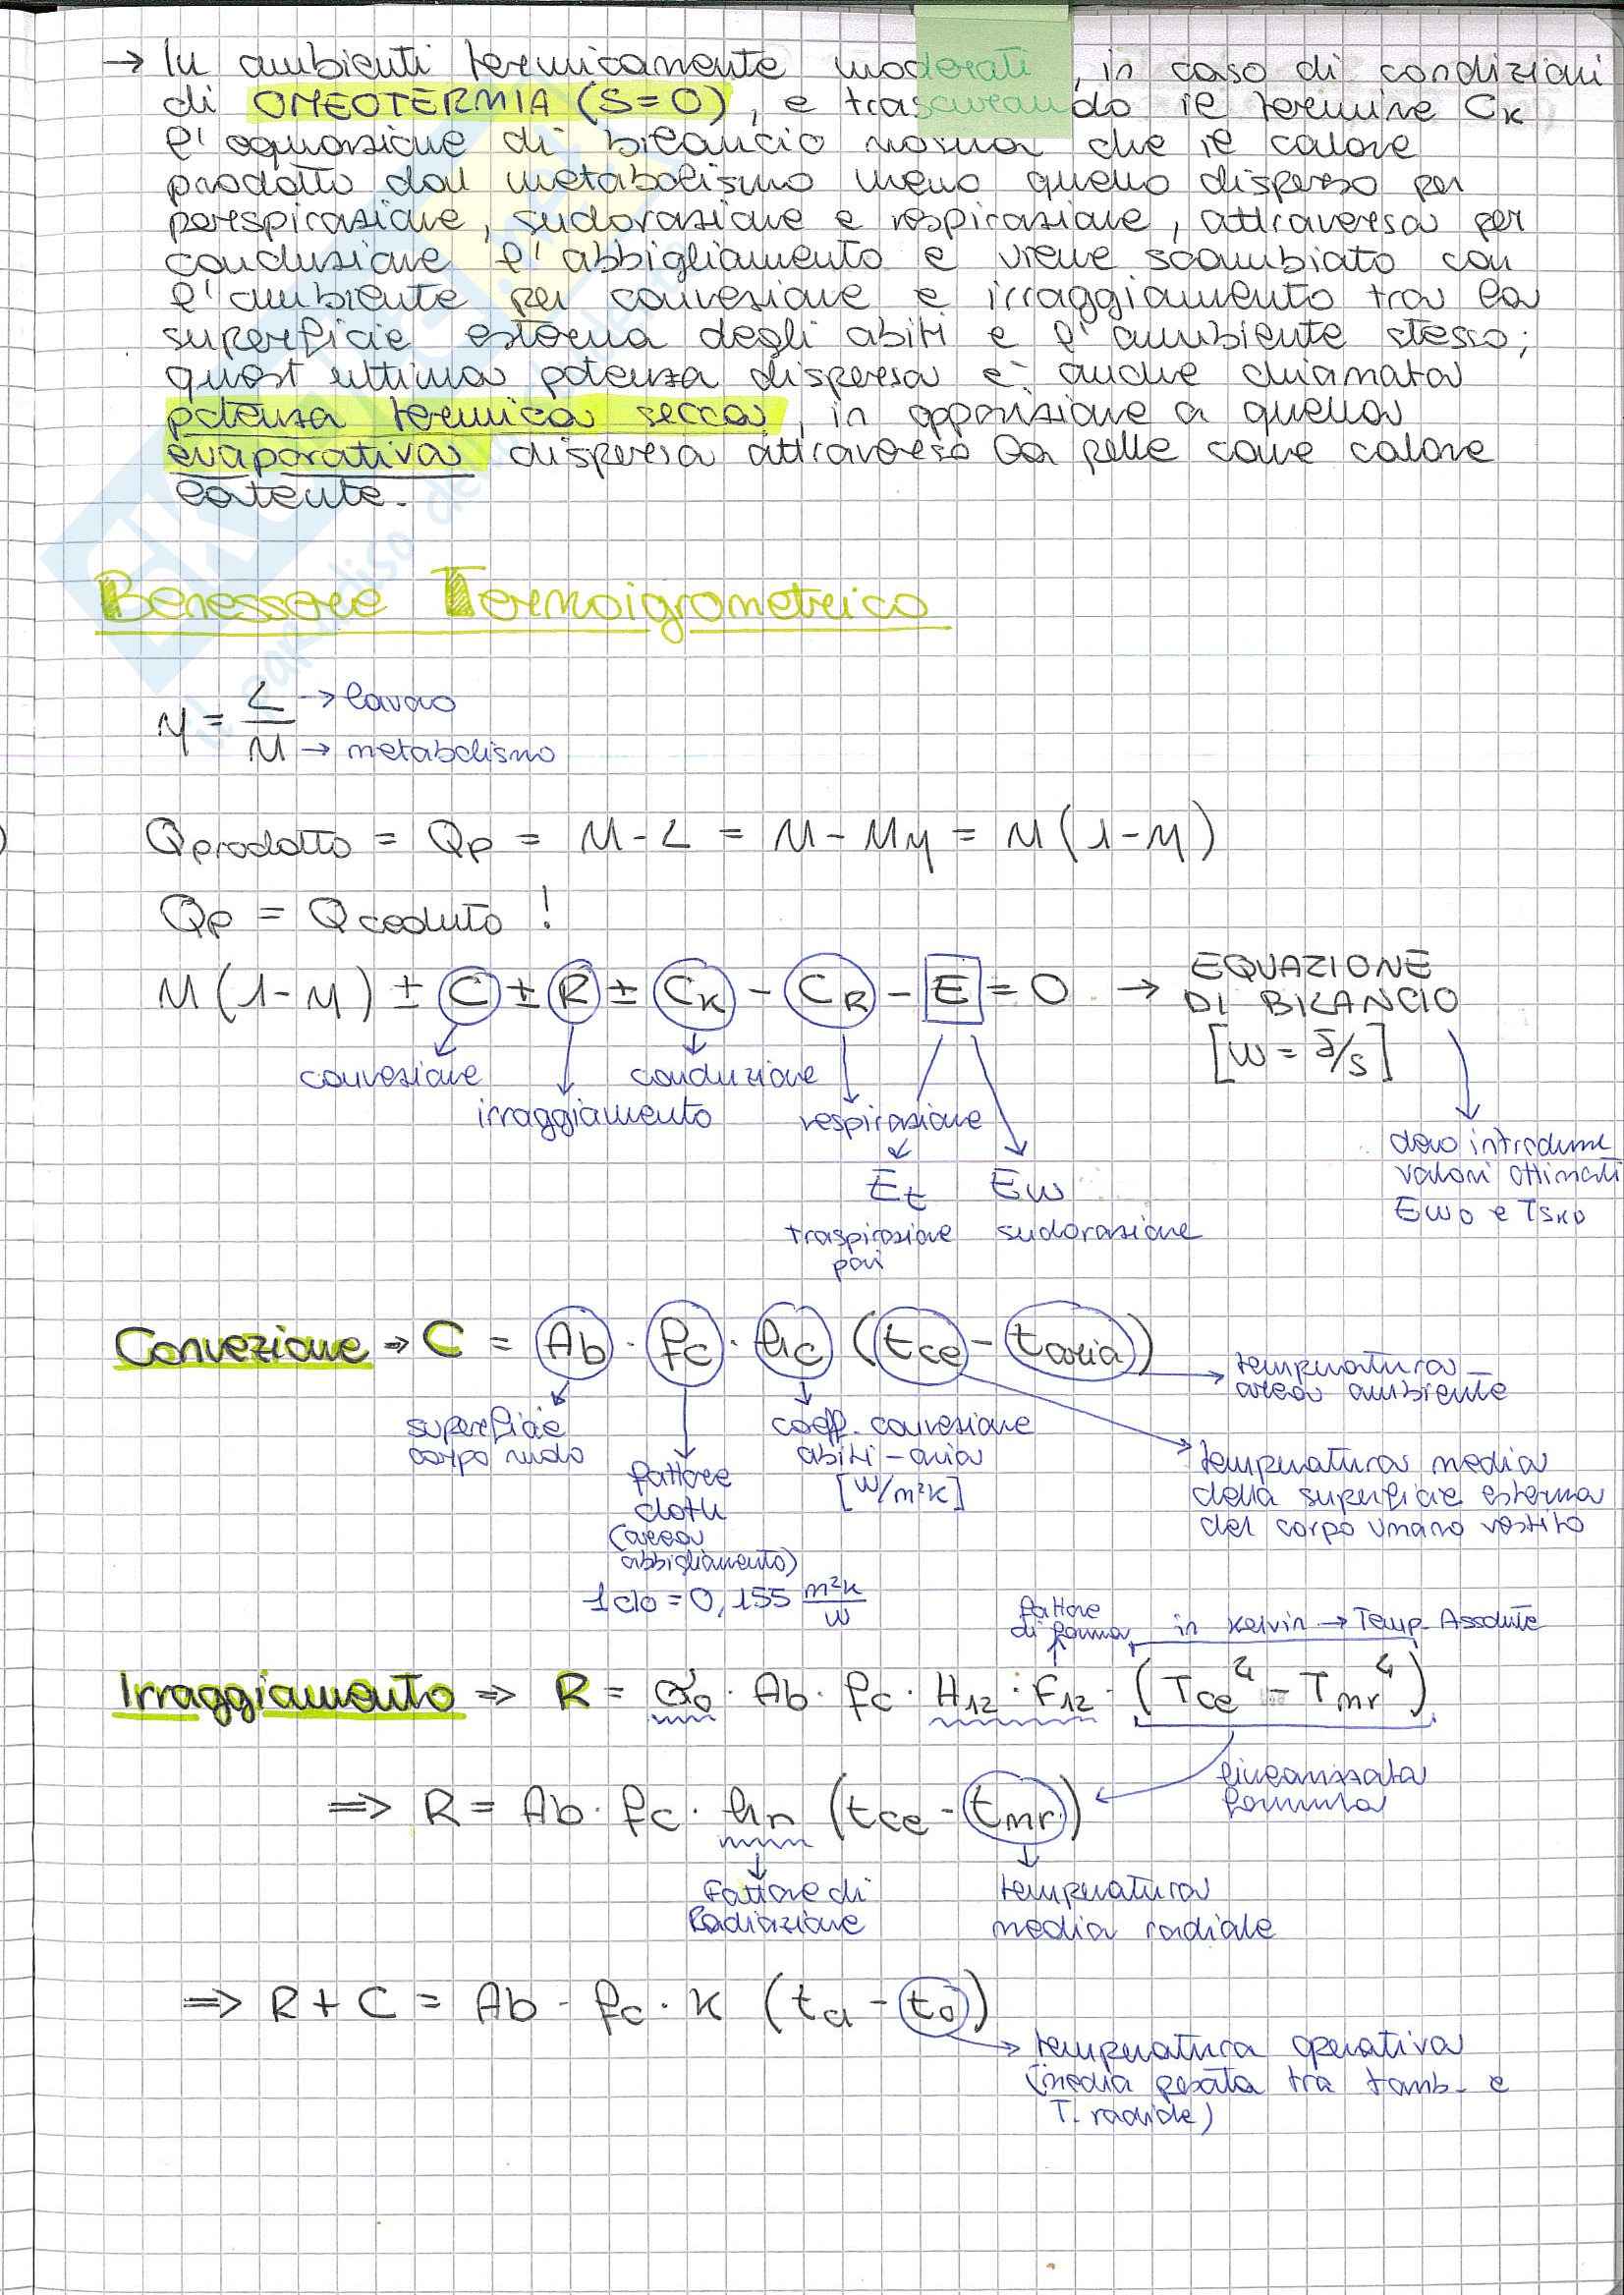 → In ambienti termicamente moderati, in caso di condizioni
di OMEOTERMIA (S=0), e trascurando il termine CK
l'equazione di bilancio mostra che il calore
prodotto dal metabolismo meno quello disperso per
perespirazione, sudorazione e respirazione, attraversa per
conduzione l'abbigliamento e viene scambiato con
l'ambiente per convezione e irraggiamento tra la
superficie esterna degli abiti e l'ambiente stesso;
quest'ultima potenza dispersa è anche chiamata
potenza termica secca, in opposizione a quella
evaporativa dispersa attraverso la pelle come calore
latente.
Benessere Termoigrometrico
η = L/M
→ lavoro
→ metabolismo
Qprodotto = Qp = M - L = M - Mη = M(1-η)
Qp = Qceduto !
M(1-η) ± C ± R ± CK - CR - E = 0 → EQUAZIONE
DI BILANCIO
[W = J/s]
convezione
conduzione
irraggiamento
respirazione
devo introdurre
valori ottimali
Ew0 e Tsk0
Et Ew
traspirazione sudorazione
pori
Convezione → C = Ab · fc · hc (tce - taria)
temperatura
area ambiente
superficie
corpo nudo
coeff. convezione
abiti-aria
[W/m²K]
temperatura media
della superficie esterna
del corpo umano vestito
fattore
cloth
(area
abbigliamento)
1 clo = 0,155 m²K/W
fattore
di forma
in kelvin → Temp. Assolute
Irraggiamento ⇒ R = σ0 · Ab · fc · H12 · F12 · (Tce⁴ - Tmr⁴)
linearizzata
formula
⇒ R = Ab · fc · hr (tce - tmr)
Fattore di
Radiazione
temperatura
media radiale
⇒ R + C = Ab · fc · K (ta - to)
temperatura operativa
(media pesata tra tamb. e
T. radiale)